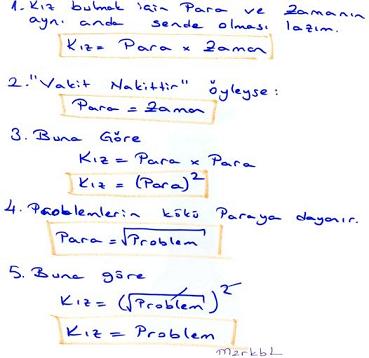 1. Kız bulmak için Para ve Zamanın
aynı anda sende olması lazım.
Kız = Para x Zaman
2. "Vakit Nakittir" öyleyse:
Para = Zaman
3. Buna Göre
Kız = Para x Para
Kız = (Para)²
4. Problemlerin kökü Paraya dayanır.
Para = √Problem
5. Buna göre
Kız = (√Problem)²
Kız = Problem
merkbL